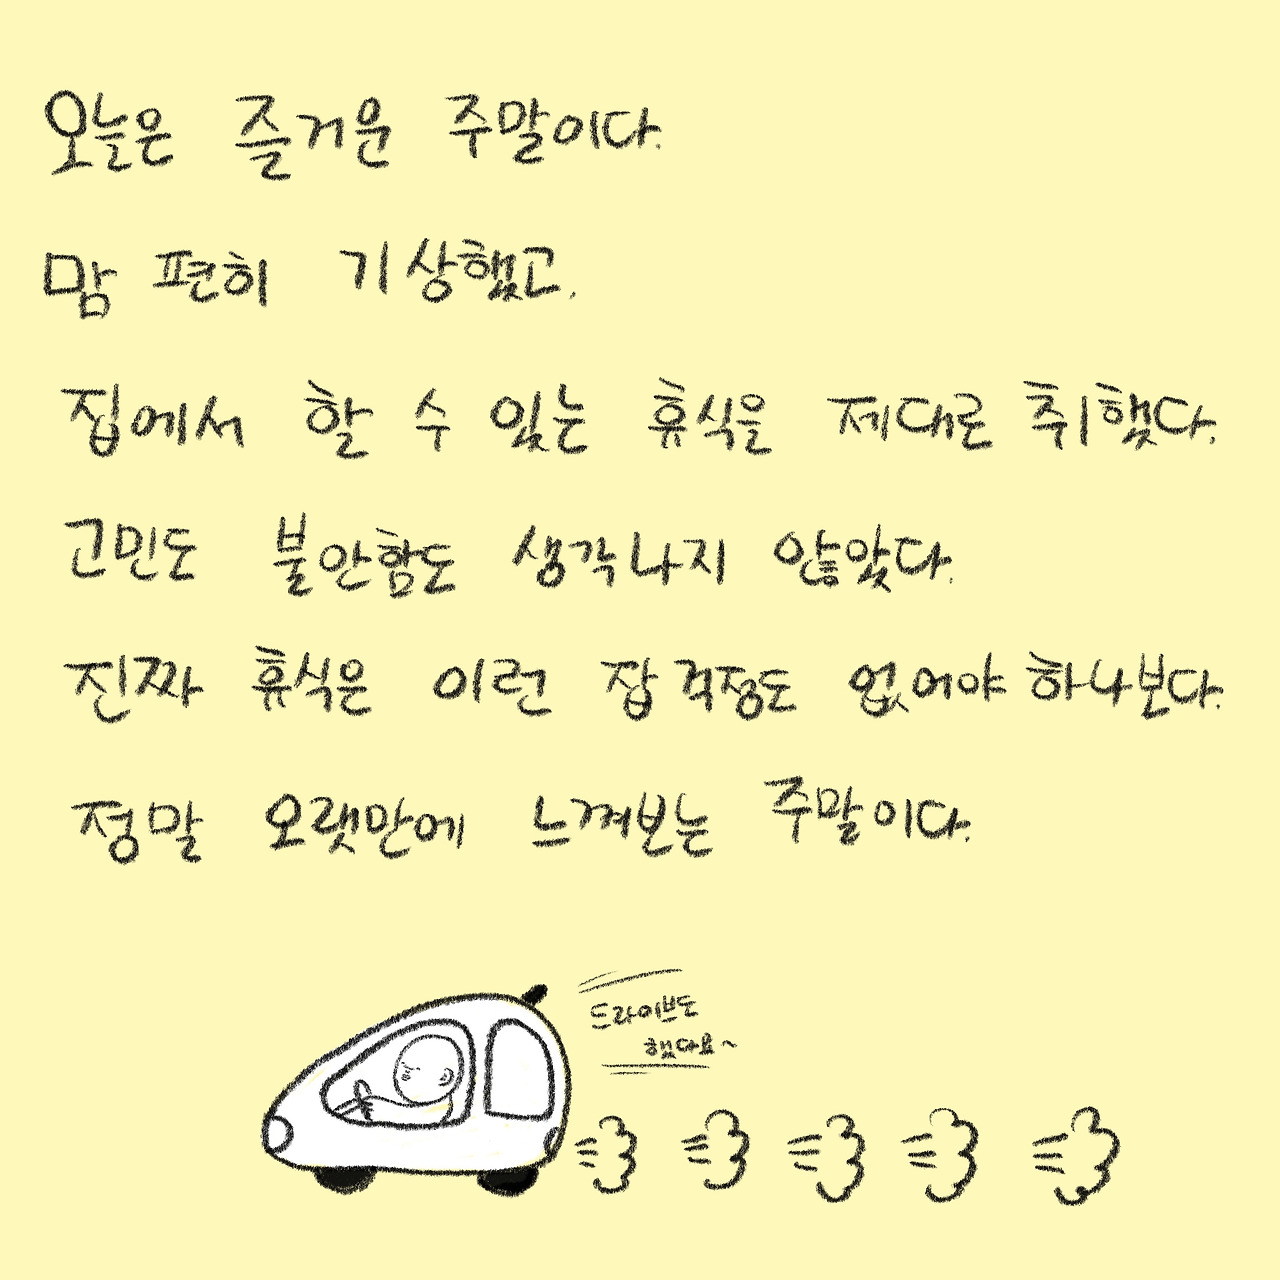 오늘은 즐거운 주말이다.
맘 편히 기상했고.
집에서 할 수 있는 휴식을 제대로 취했다.
고민도 불안함도 생각나지 않았다.
진짜 휴식은 이런 잡걱정도 없어야 하나보다.
정말 오랫만에 느껴보는 주말이다.
드라이브도
했다요~